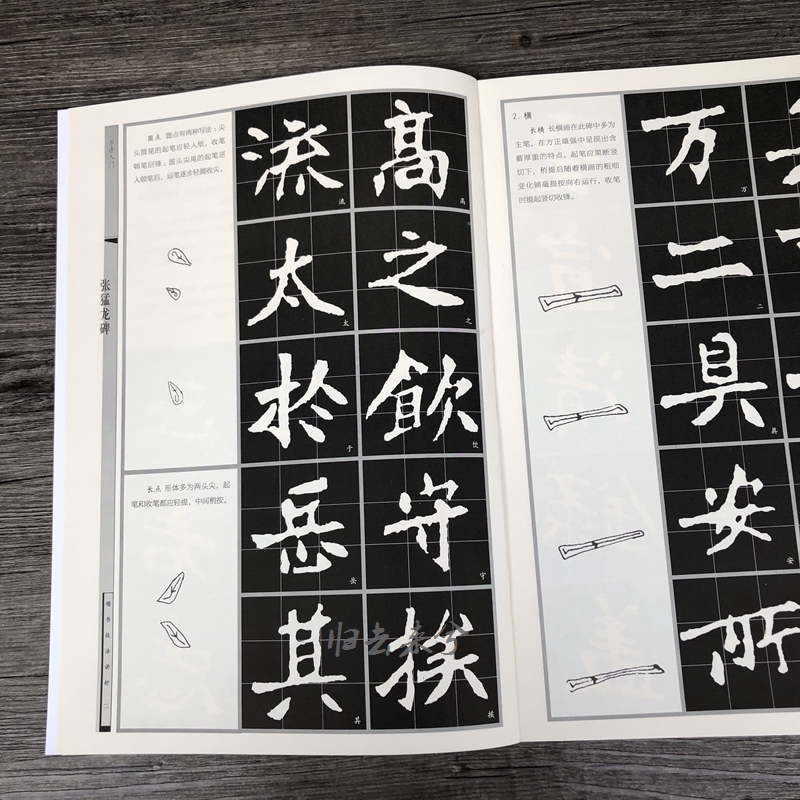 书法入门
张猛龙碑
楷书技法讲析
二
圆点 圆点有两种写法：尖
头圆尾的起笔应轻入纸，收笔
顿笔回锋；圆头尖尾的起笔逆
入顿笔后，运笔逐步轻提收尖。
流 高
流 高
太 之
太 之
於 飲
于 饮
长点 形体多为两头尖，起
笔和收笔都应轻提，中间稍按。
岳 守
岳 守
其 挨
其 挨
归去来兮
2. 横
长横 长横画在此碑中多为
主笔，在方正雄强中呈现出含
蓄厚重的特点。起笔应果断竖
切下，稍提后随着横画的粗细
变化铺毫提按向右运行，收笔
时提起竖切收锋。
万
万
二
二
具
具
安
安
所